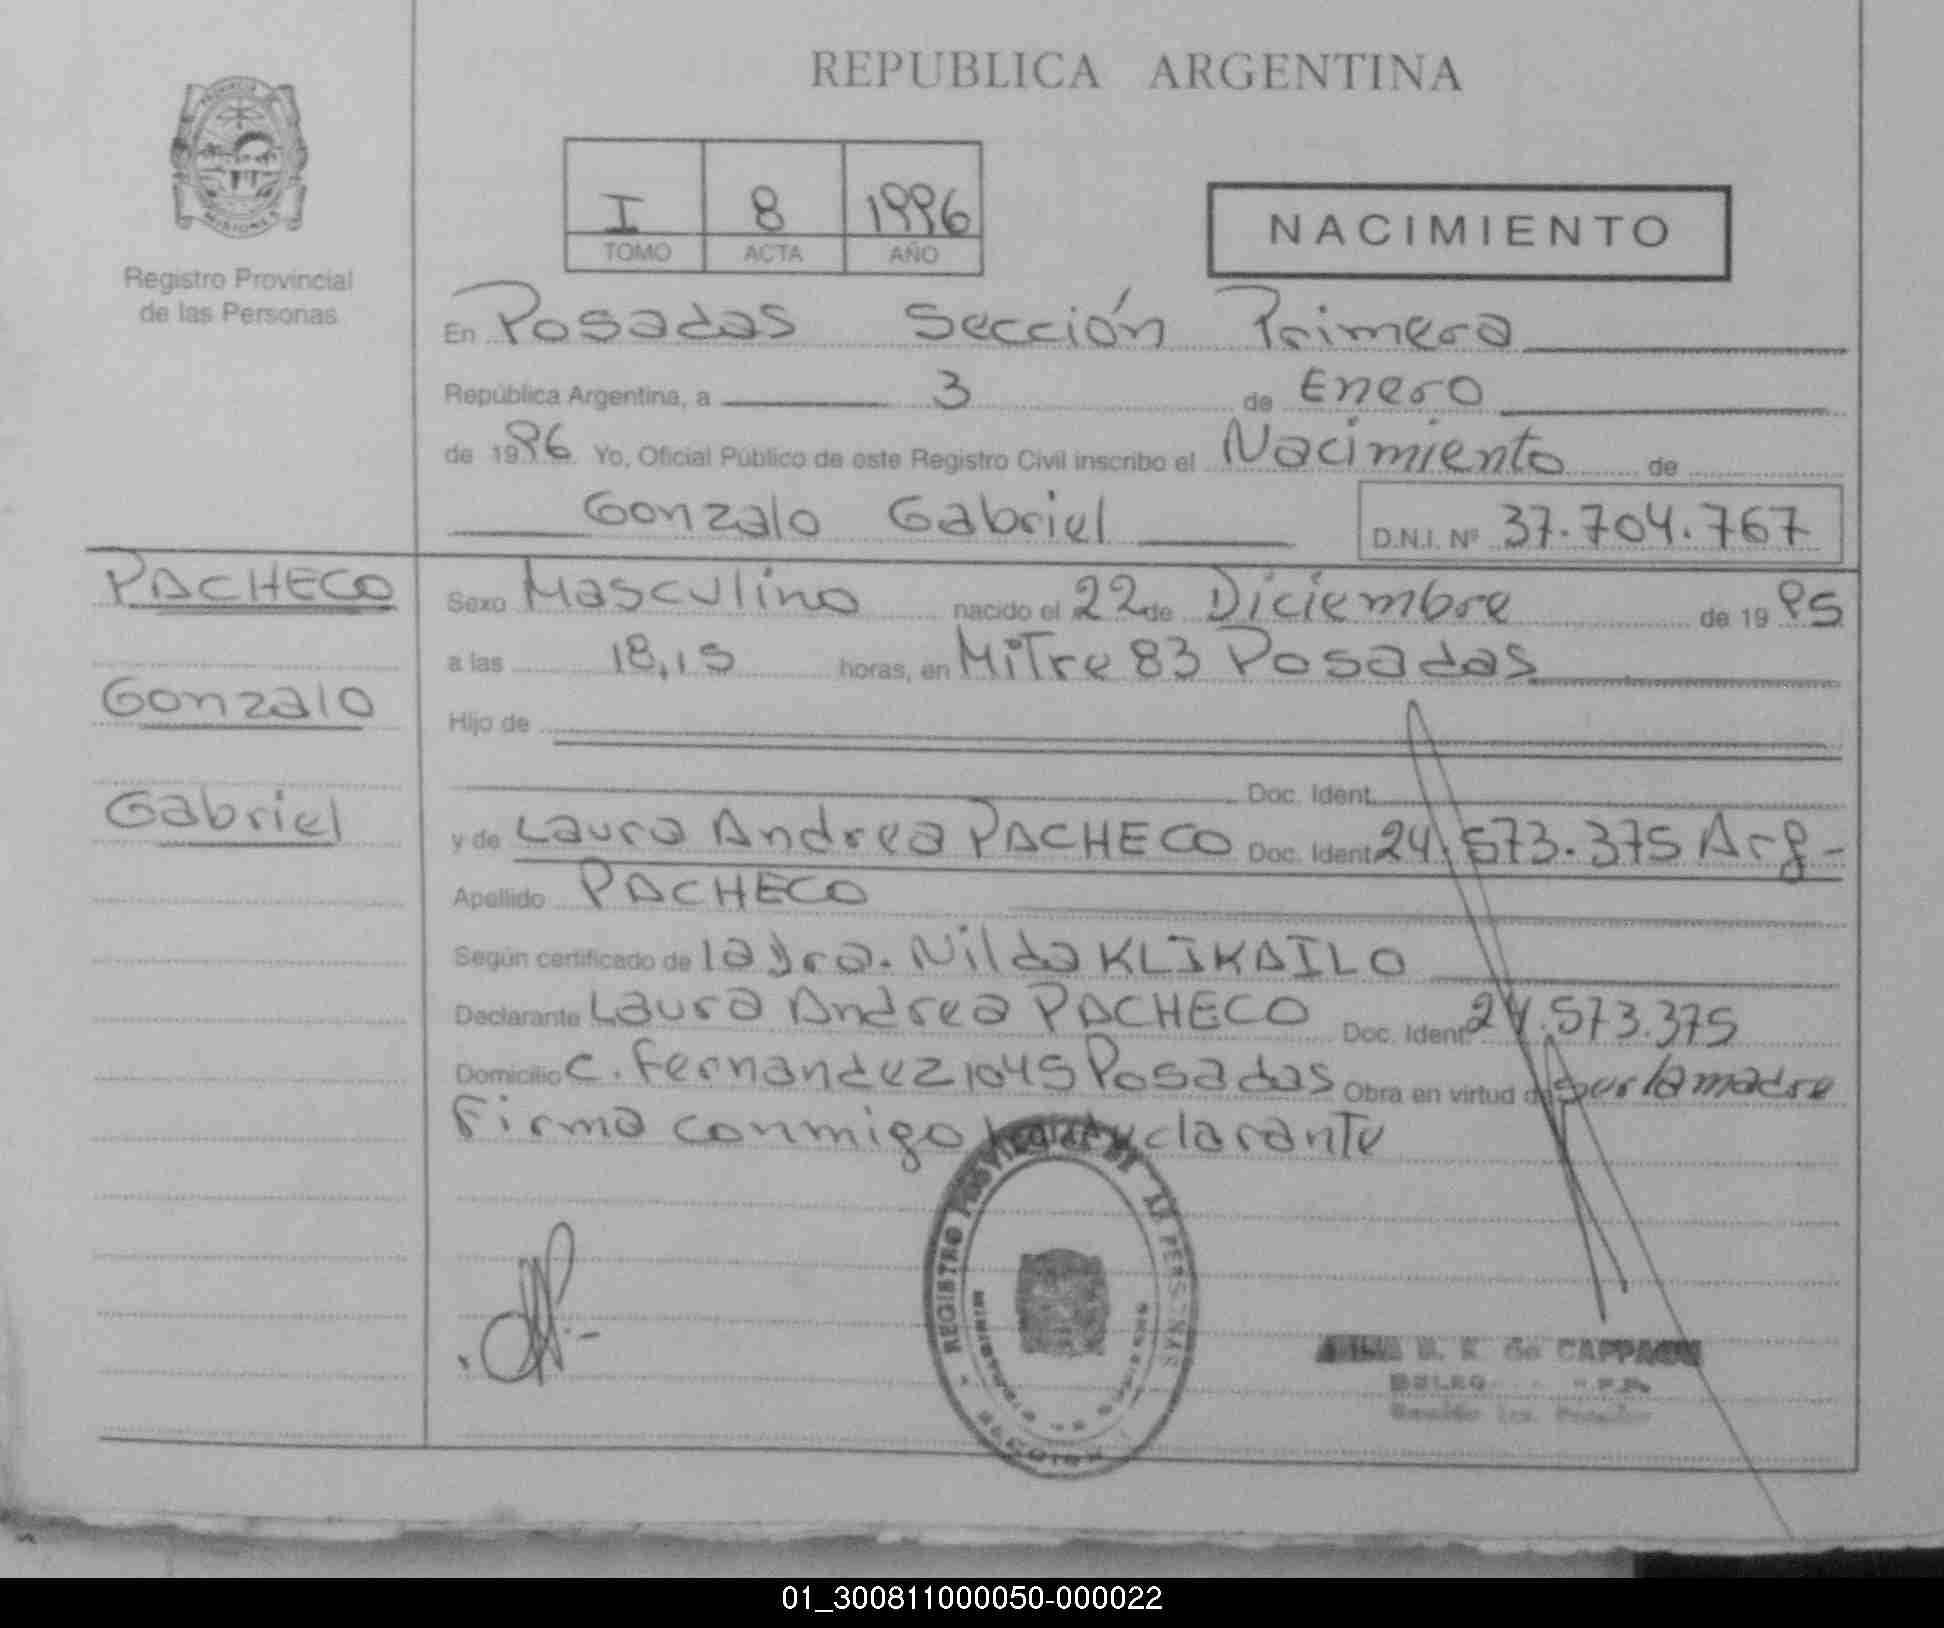 REPUBLICA ARGENTINA
PROVINCIA DE
MISIONES
Registro Provincial
de las Personas
I 8 1996
TOMO ACTA AÑO
NACIMIENTO
En Posadas Sección Primera
República Argentina, a 3 de Enero
de 1996 Yo, Oficial Público de este Registro Civil inscribo el Nacimiento de
Gonzalo Gabriel D.N.I. Nº 37.704.767
PACHECO
Gonzalo
Gabriel
Sexo Masculino nacido el 22 de Diciembre de 19 95
a las 18,15 horas, en Mitre 83 Posadas
Hijo de
Doc. Ident.
y de Laura Andrea PACHECO Doc. Ident. 24.573.375 Arg-
Apellido PACHECO
Según certificado de la Dra. Nilda KLIKAILO
Declarante Laura Andrea PACHECO Doc. Ident. 24.573.375
Domicilio C. Fernandez 1045 Posadas Obra en virtud de ser la madre
Firma conmigo la declarante
REGISTRO PROVINCIAL DE LAS PERSONAS
MINISTERIO DE GOBIERNO
SECCION
de CAPPAGU
01_300811000050-000022